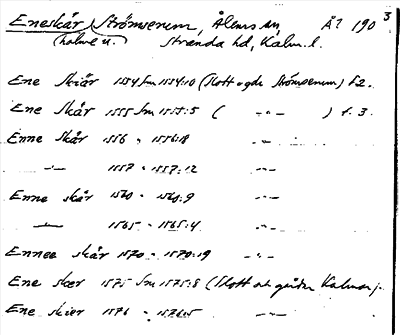 Eneskär, Strömserum, Ålems sn, Å? 190 3
(holme u. Stranda hd, Kalm. l.
Ene Skiär 1554 sm 1554:10 (Slott o gda Strömserum) f. 2.
Ene Skår 1555 sm 1555:5 ( -"- ) f. 3.
Enne Skår 1556 - 1556:18 -"-
-"- 1557 - 1557:12 -"-
Enne skär 1560 - 1560:9 -"-
-"- 1565 - 1565:4 -"-
Ennee skår 1570 - 1570:19 -"-
Ene skær 1575 sm 1575:8 (Slott och gården Kalmar)
Ene skier 1576 - 1576:5 -"-